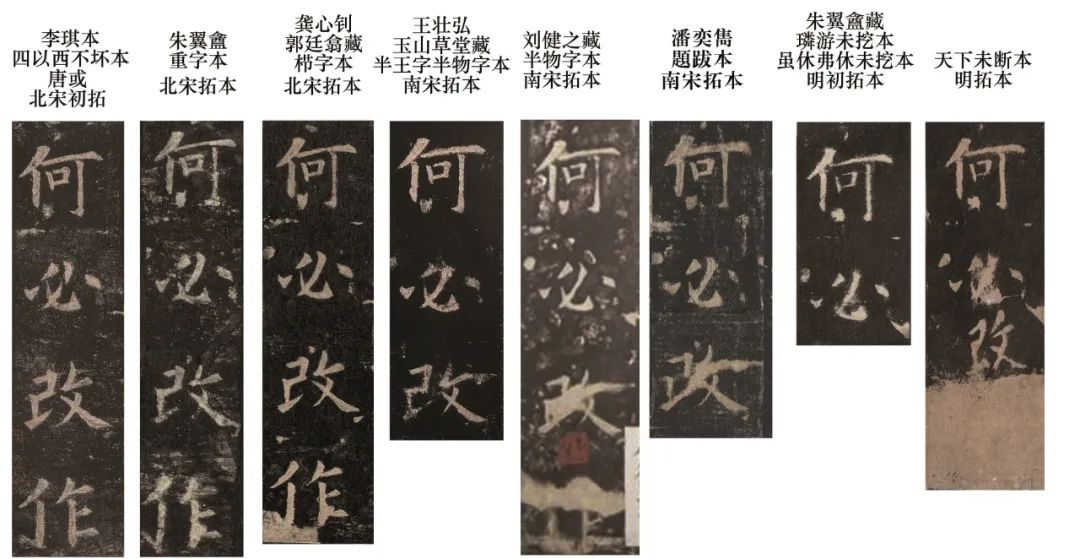 李琪本
四以西不坏本
唐或
北宋初拓
朱翼盦
重字本
北宋拓本
龚心钊
郭廷翕藏
栉字本
北宋拓本
王壮弘
玉山草堂藏
半王字半物字本
南宋拓本
刘健之藏
半物字本
南宋拓本
潘奕雋
題跋本
南宋拓本
朱翼盦藏
璘游未挖本
虽休弗休未挖本
明初拓本
天下未断本
明拓本
何必改作
何必改作
何必改作
何必改
何必改
何必改
何必
何必改